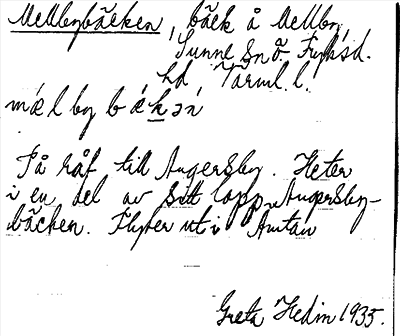 Mellbybäcken, bäck å Mellby,
Sunne sn Ö. Fryksd.
hd Värml. l.
mǽlbybǽkən
På råf till Ängersby. Heter
i en del av sitt lopp Ängersby-
bäcken. Flyter ut i Ämtan
Greta Hedin 1935.